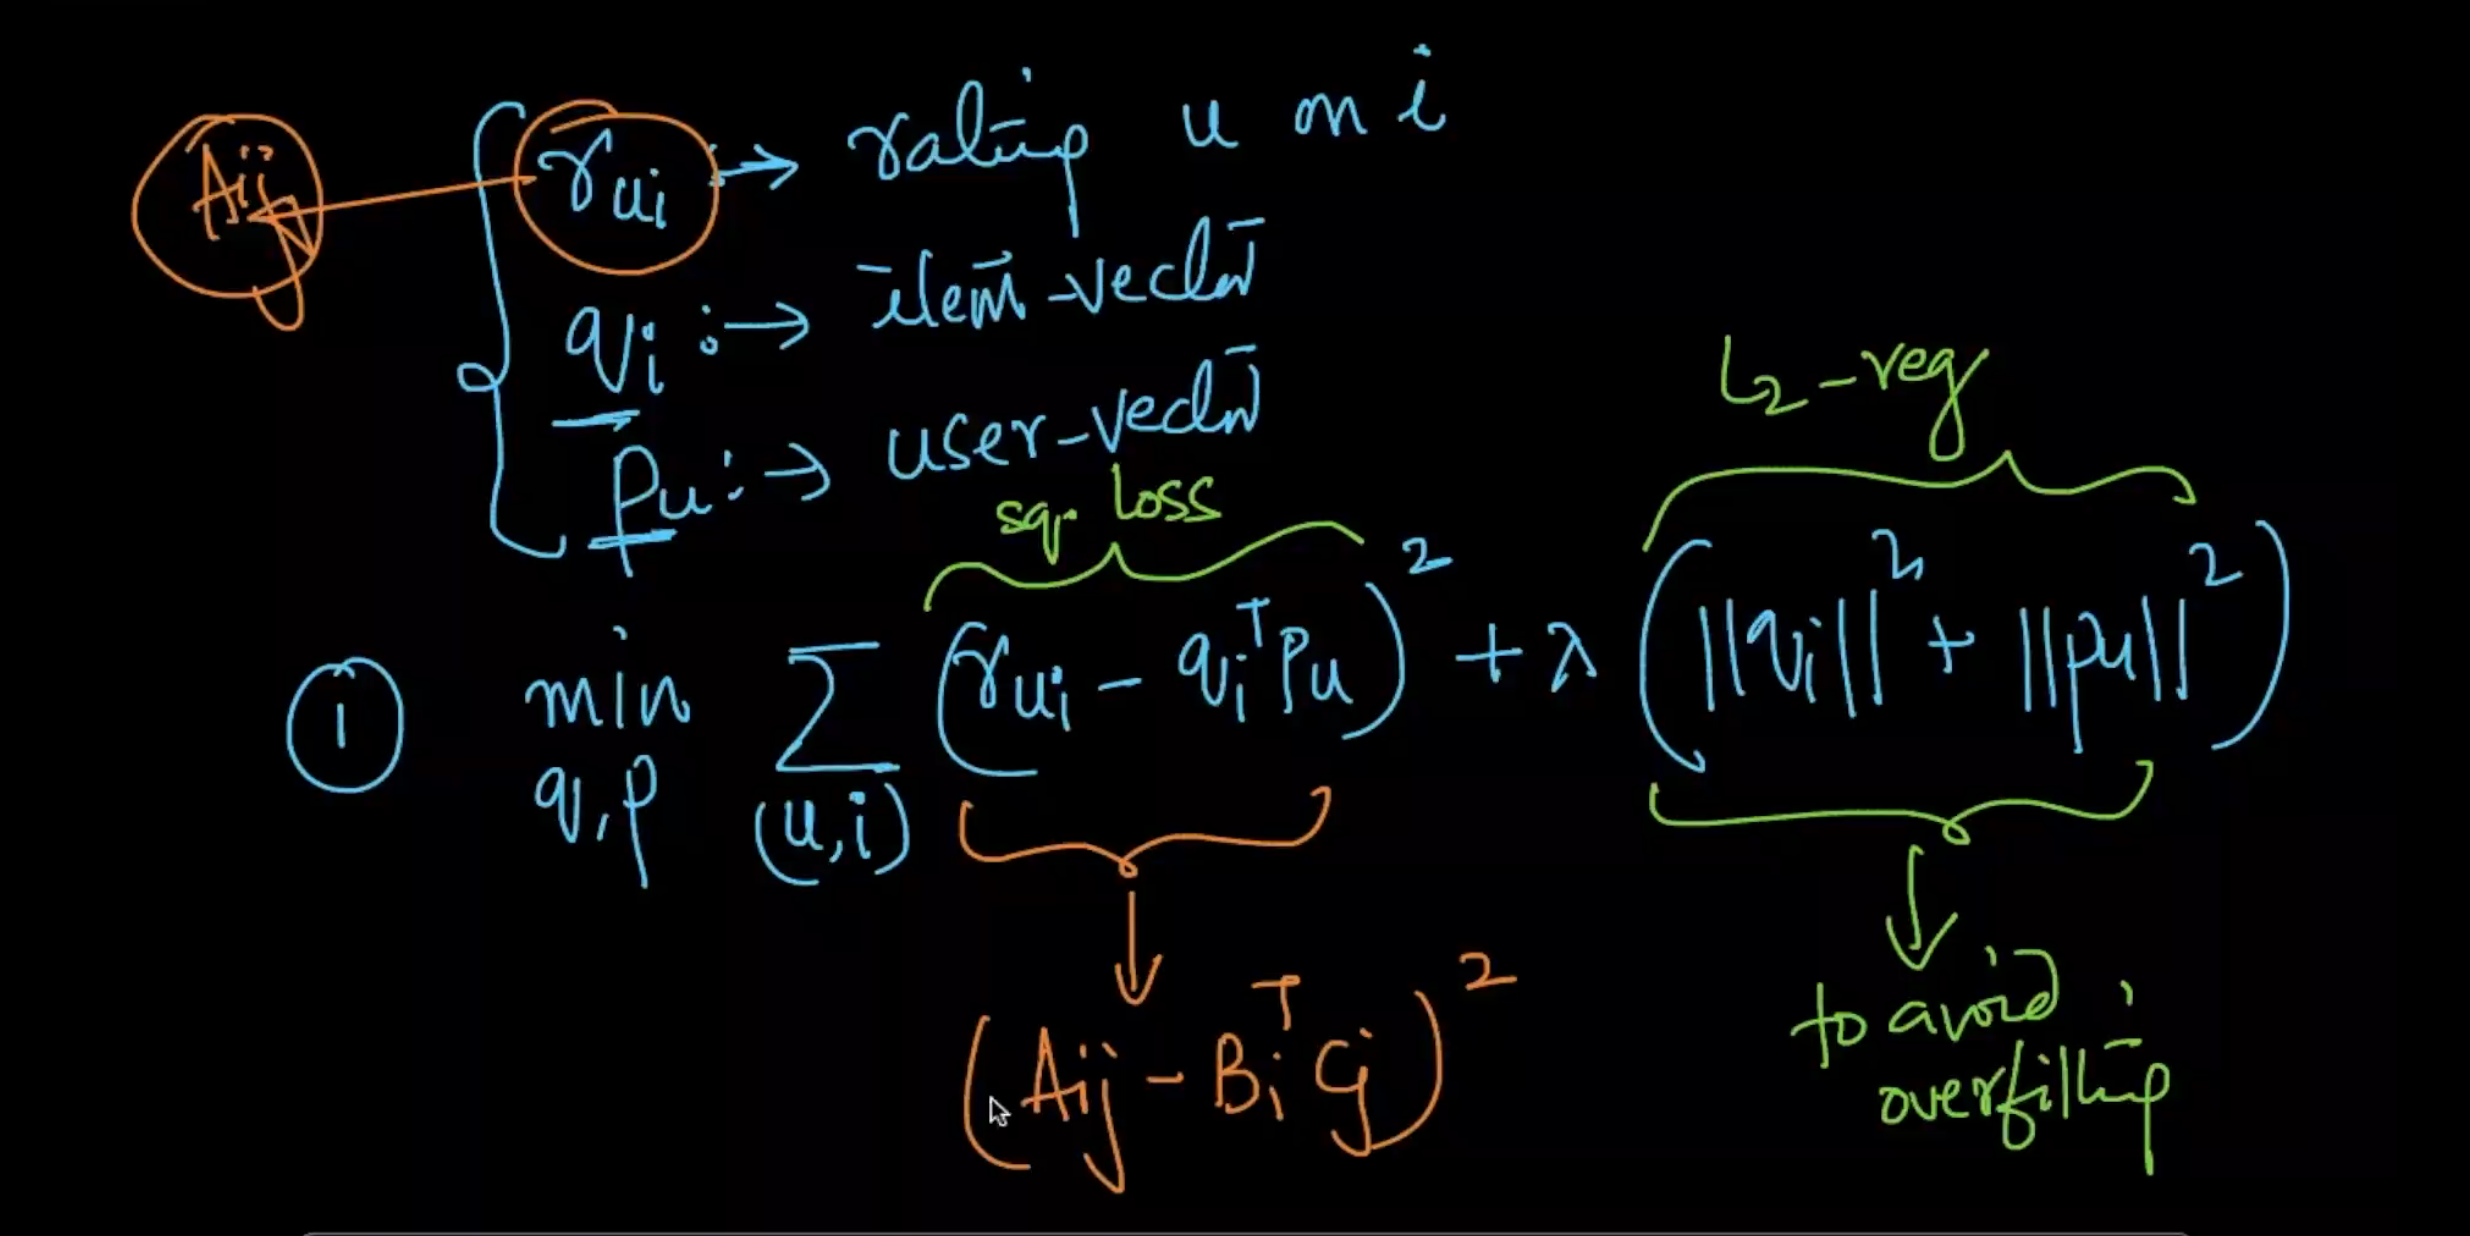 Aij
rui : → rating u on i
qi : → item-vector
pu : → user-vector
L2-reg
sq. loss
① min Σ (rui - qiᵀPu)² + λ (||qi||² + ||pu||²)
q,p (u,i)
(Aij - Biᵀ Cj)²
to avoid
overfitting